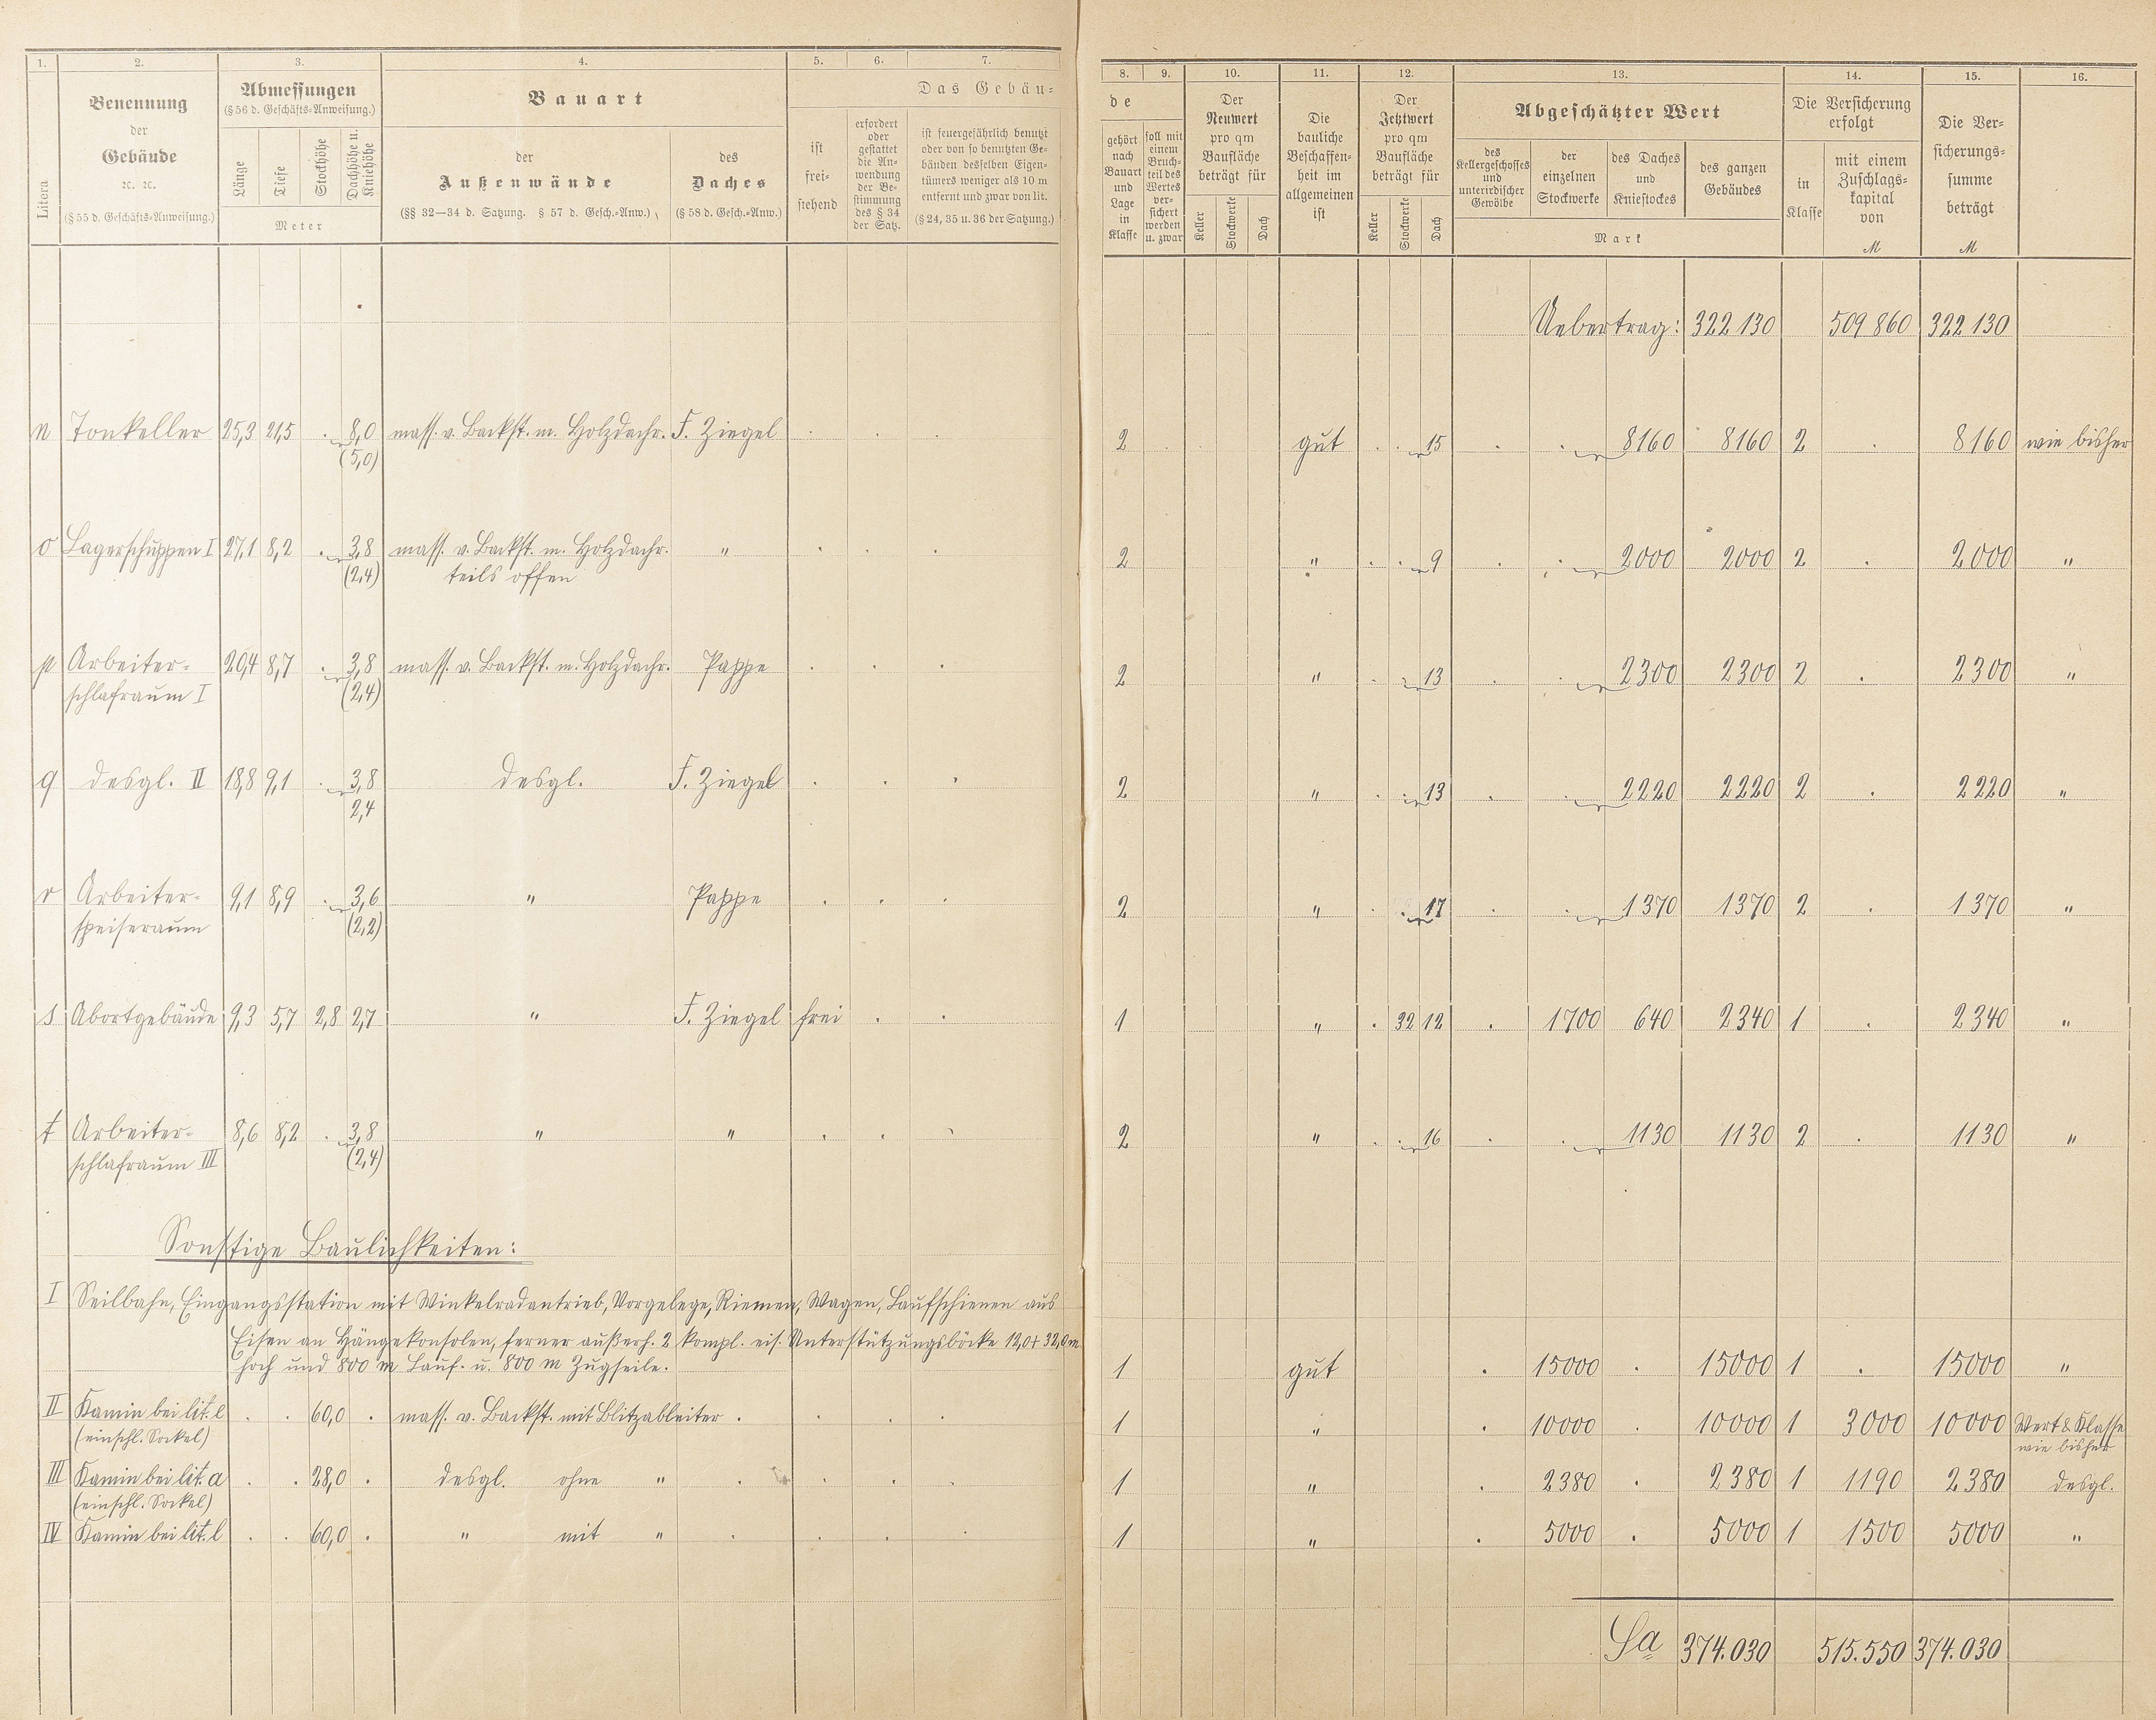 1. 2. 3. 4. 5. 6. 7. 8. 9. 10. 11. 12. 13. 14. 15. 16.
Litera
Benennung
der
Gebäude
ꝛc. ꝛc.
(§ 55 d. Geschäfts-Anweisung.)
Abmessungen
(§ 56 d. Geschäfts-Anweisung.)
Länge
Tiefe
Stockhöhe
Dachhöhe u.
Kniehöhe
Meter
Bauart
der
Außenwände
(§§ 32—34 d. Satzung. § 57 d. Gesch.-Anw.)
des
Daches
(§ 58 d. Gesch.-Anw.)
Das Gebäu-
ist
frei-
stehend
erfordert
oder
gestattet
die An-
wendung
der Be-
stimmung
des § 34
der Satz.
ist feuergefährlich benutzt
oder von so benutzten Ge-
bäuden desselben Eigen-
tümers weniger als 10 m
entfernt und zwar von lit.
(§ 24, 35 u. 36 der Satzung.)
de
gehört
nach
Bauart
und
Lage
in
Klasse
soll mit
einem
Bruch-
teil des
Wertes
ver-
sichert
werden
u. zwar
Der
Neuwert
pro qm
Baufläche
beträgt für
Keller
Stockwerke
Dach
Die
bauliche
Beschaffen-
heit im
allgemeinen
ist
Der
Jetztwert
pro qm
Baufläche
beträgt für
Keller
Stockwerke
Dach
Abgeschätzter Wert
des
Kellergeschosses
und
unterirdischer
Gewölbe
der
einzelnen
Stockwerke
des Daches
und
Kniestockes
des ganzen
Gebäudes
Mark
Die Versicherung
erfolgt
in
Klasse
mit einem
Zuschlags-
kapital
von
M
Die Ver-
sicherungs-
summe
beträgt
M
Uebertrag: 322 130 509 860 322 130
n Tonkeller 25,3 21,5 . 8,0 mass. v. Backst. m. Holzdachr. F. Ziegel . . . 2 . . gut . . 15 . . 8160 8160 2 . 8160 wie bisher
(5,0)
o Lagerschuppen I 27,1 8,2 . 3,8 mass. v. Backst. m. Holzdachr. " . . . 2 " . . 9 . . 2000 2000 2 . 2000 "
(2,4) teils offen
p Arbeiter- 20,4 8,7 . 3,8 mass. v. Backst. m. Holzdachr. Pappe . . . 2 " . . 13 . . 2300 2300 2 . 2300 "
schlafraum I (2,4)
q desgl. II 18,8 9,1 . 3,8 desgl. F. Ziegel . . . 2 " . . 13 . . 2220 2220 2 . 2220 "
2,4
r Arbeiter- 9,1 8,9 . 3,6 " Pappe . . . 2 " . . 17 . . 1370 1370 2 . 1370 "
speiseraum (2,2)
s Abortgebäude 9,3 5,7 2,8 2,7 " F. Ziegel frei . . 1 " . 32 12 . 1700 640 2340 1 . 2340 "
t Arbeiter- 8,6 8,2 . 3,8 " " . . . 2 " . . 16 . . 1130 1130 2 . 1130 "
schlafraum III (2,4)
Sonstige Baulichkeiten:
I Seilbahn, Eingangsstation mit Winkelradantrieb, Vorgelege, Riemen, Wagen, Laufschienen aus
Eisen an Hängekonsolen, ferner außerh. 2 kompl. eis. Unterstützungsböcke 12,0 + 32,0 m
hoch und 800 m Lauf- u. 800 m Zugseile. 1 gut . 15000 . 15000 1 . 15000 "
II Kamin bei lit. l . . 60,0 . mass. v. Backst. mit Blitzableiter . . . . 1 " . 10000 . 10000 1 3000 10000 Wert & Klasse
(einschl. Sockel) wie bisher
III Kamin bei lit. a . . 28,0 . desgl. ohne " . . . . 1 " . 2380 . 2380 1 1190 2380 desgl.
(einschl. Sockel)
IV Kamin bei lit. l . . 60,0 . " mit " . . . . 1 " . 5000 . 5000 1 1500 5000 "
Sa 374.030 515.550 374.030